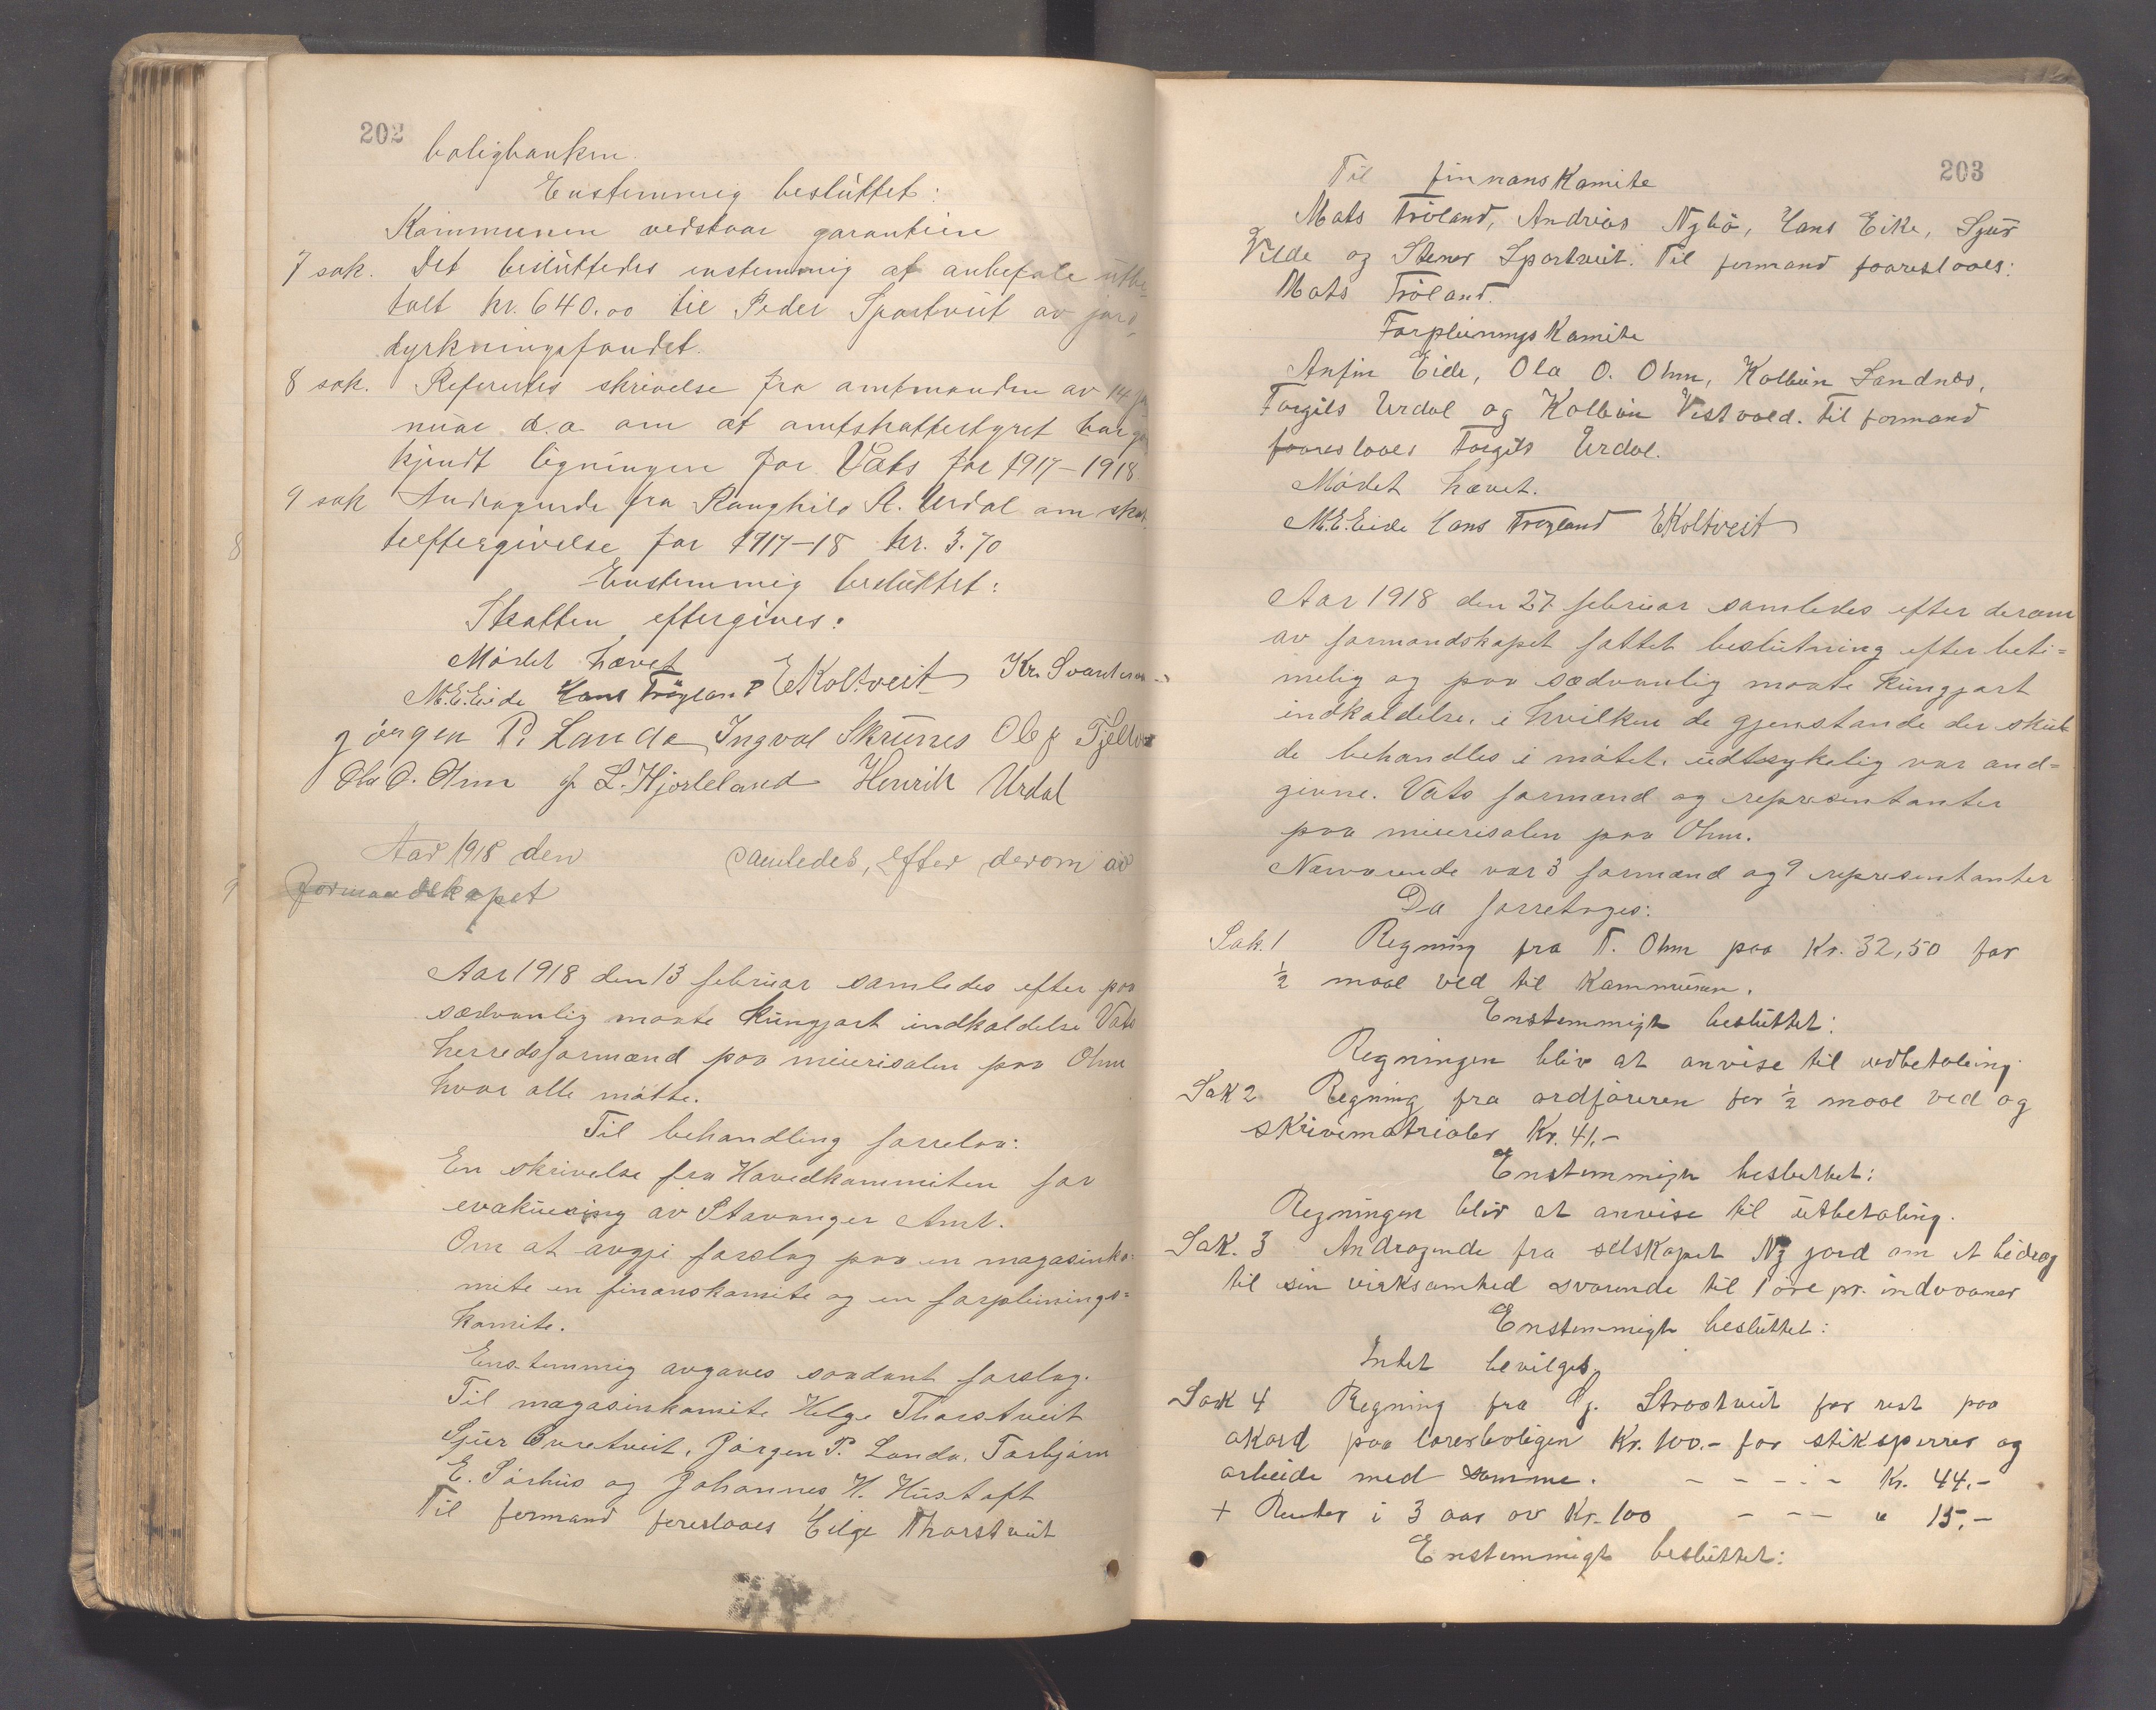 202
boligbanken.
Enstemmig besluttet:
Kommunen vedstaar garantien
7 sak. Det besluttedes enstemmig at anbefale utbe-
talt kr. 640.00 til Peder Sportveit av jord-
dyrkningsfondet.
8 sak. Refereredes skrivelse fra amtmanden av 14 ja
nuar d.a. om at amtskattestyret har go
kjendt ligningen for Vats for 1917-1918
9 sak Andragende fra Ranghild A. Urdal om skat-
teeftergivelse for 1917-18 kr. 3.70
Enstemmig besluttet:
Skatten eftergives.
Mødet hævet
M.E. Eide Hans Trøyland EKoltveit Kr. Svart
Jørgen P. Landa Ingval Skrunes Olef Fjell
Ola O. Ohm L. Hjorteland Henrik Urdal
Aar 1918 den samledes, efter derom av
formandskapet
Aar 1918 den 13 februar samledes efter paa
sædvanlig maate kungjort indkaldelse Vats
herredsformænd paa meierisalen paa Ohm
hvor alle møtte.
Til behandling forelaa:
En skrivelse fra Hovedkommiten for
evakuering av Stavanger Amt.
Om at avgi forslag paa en magasinko-
mite en finanskomite og en forpleinings-
komite.
Enstemmig avgaves saadant forslag.
Til magasinkomite Helge Thorstveit
Sjur Øvretveit, Jørgen P. Landa, Torbjørn
E. Sørhus og Johannes H. Hustoft
Til formand foreslaaes Helge Thorstveit
203
Til finnanskomite
Mats Trøland, Andreas Nybø, Hans Eike, Sjur
Vilde og Stener Sportveit. Til formand foareslaaes:
Mats Trøland.
Forpleiningskomite
Anfin Eide, Ola O. Ohm, Kolbein Sandnes,
Torgils Urdal og Kolbein Vestvold. Til formand
foareslaaes Torgils Urdal.
Mødet hævet.
M.E. Eide Hans Trøyland EKoltveit
Aar 1918 den 27 februar samledes efter derom
av formandskapet fattet beslutning efter beti=
melig og paa sædvanlig maate kungjort
indkaldelse, i hvilken de gjenstande der skul
de behandles i møtet, udtrykkelig var and=
givne. Vats formænd og representanter
paa meierisalen paa Ohm.
Nærværende var 3 formænd og 9 representanter
Da forretoges:
Sak. 1 Regning fra T. Ohm paa Kr. 32,50 for
½ maal ved til Kommunen.
Enstemmigt besluttet:
Regningen blir at anvise til udbetaling.
Sak 2 Regning fra ordføreren for ½ maal ved og
skrivematrialer Kr. 41.-
Enstemmigt besluttet:
Regningen blir at anvise til utbetaling.
Sak. 3 Andragende fra selskapet Ny jord om et bidrag
til sin virksamhed svarende til 1 øre pr. indvaaner
Enstemmigt besluttet:
Intet bevilges.
Sak 4 Regning fra Gj. Straatveit for rest paa
akord paa lærerboligen Kr. 100.- for stiksperrer og
arbeide med samme. - - - - - Kr. 44.-
+ Renter i 3 aar av Kr. 100 - - - - " 15.-
Enstemmigt besluttet: